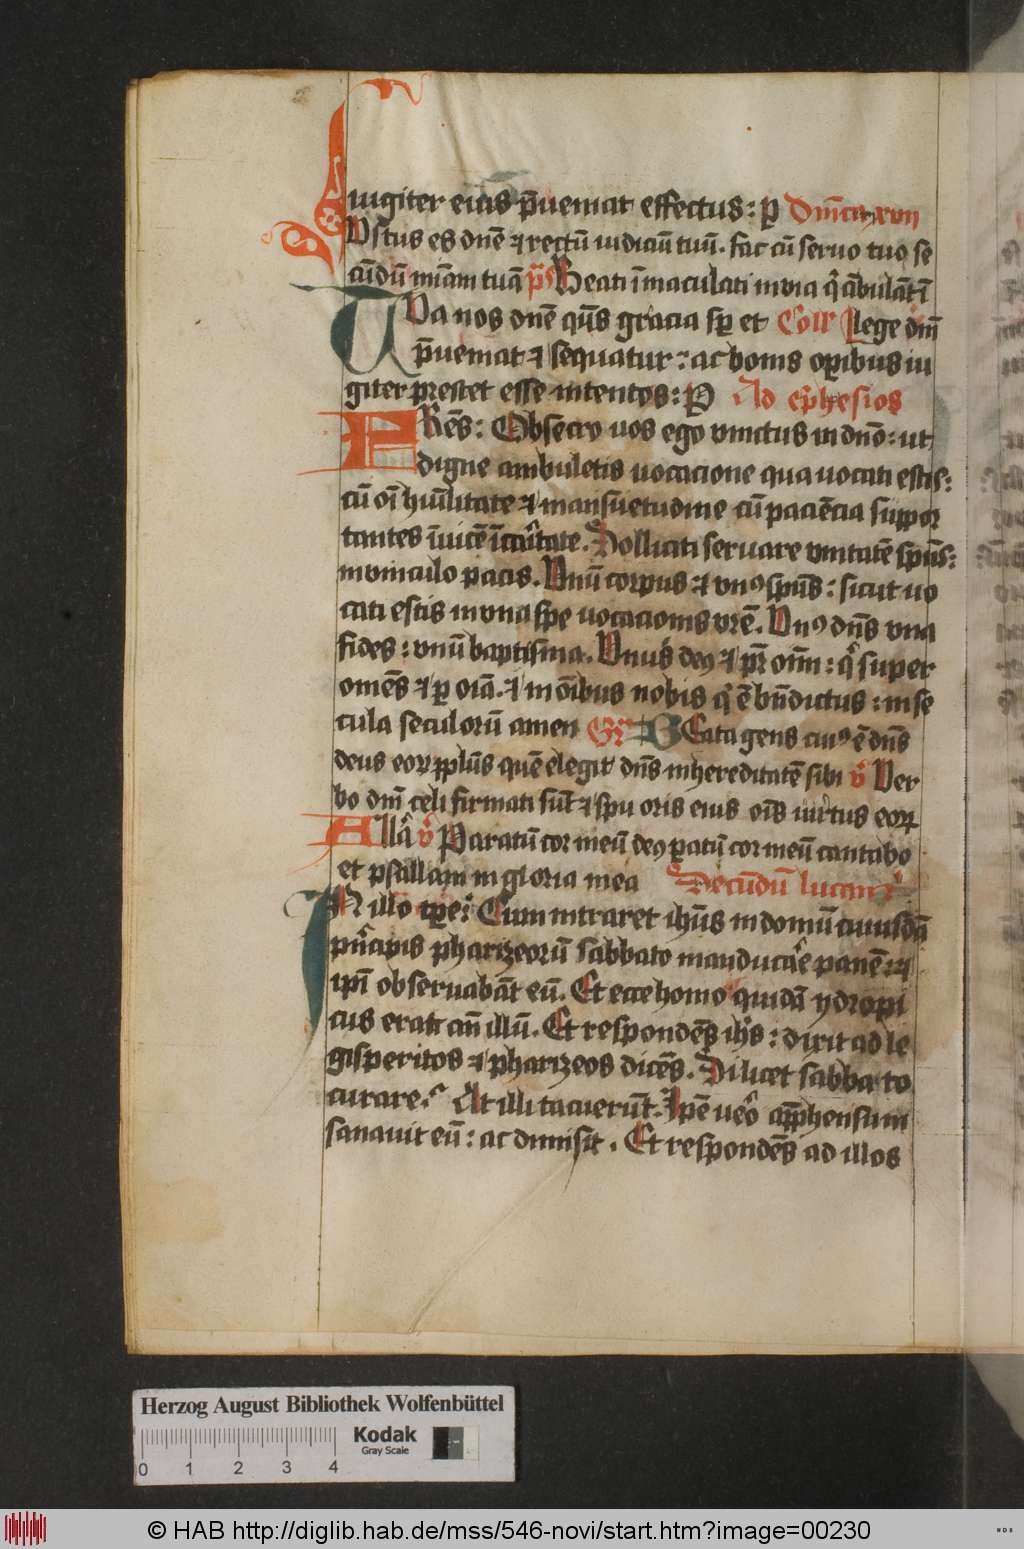 iugiter eius p̄ueniat effectus: ꝑ Dn̄ica xvii
Vstus es dn̄e ⁊ rectū iudiciū tuū. fac cū seruo tuo se
cūdū mīam tuā p̄s Beati īmaculati in via q̄ ābulāt ī
Ua nos dn̄e q̄s gracia sp̄ et Coll̄ lege dn̄i
p̄ueniat ⁊ sequatur: ac bonis oꝑibus iu
giter prestet esse intentos: P Ad ep̄hesios
Rēs: Obsecro uos ego vinctus in dn̄o: ut
digne ambuletis uocacione qua uocati estis:
cū oī hūilitate ⁊ mansuetudine cū paciēcia suppor
tantes īuicē ī caritate. Solliciti seruare vnitatē sp̄us:
in vinculo pacis. Vnū corpus ⁊ vnꝰ sp̄us: sicut uo
cati estis in vna spe uocacionis vr̄e. Vnꝰ dn̄s vna
fides: vnū baptisma. Vnus deꝰ ⁊ pr̄ om̄: q̄ super
omēs ⁊ ꝑ oīa. ⁊ in oībus nobis q̄ ē bn̄dictus: in se
cula seculorū amen Gr̄ BEata gens cuiꝰ ē dn̄s
deus eoꝝ ppl̄us quē elegit dn̄s in hereditatē sibi v̄ Ver
bo dn̄i celi firmati sūt ⁊ spu oris eius oīs uirtus eoꝝ
Allā v̄ Paratū cor meū deꝰ ꝑatū cor meū cantabo
et psallam in gloria mea Secūdū lucam
N illo tꝑe: Cum intraret ih̄us in domū cuiusdā
pn̄cipis pharizeorū sabbato manducāe panē: ⁊
ip̄i obseruabāt eū. Et ecce homo quidā ydropi
cus erat an̄ illū. Et respondēs ih̄s: dixit ad le
gisperitos ⁊ pharizeos dicēs. Si licet sabbato
curare? At illi tacuerūt. Ip̄e uero app̄hensum
sanauit eū: ac dimisit. Et respondēs ad illos
Herzog August Bibliothek Wolfenbüttel
0 1 2 3 4
Kodak
Gray Scale
© HAB http://diglib.hab.de/mss/546-novi/start.htm?image=00230